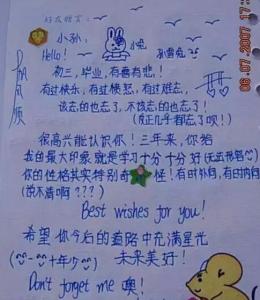 好友赠言:
小孙:
Hello!
小兔
孙雪兔
初三,毕业,有喜有悲!
有过快乐,有过愤怒,有过难忘,
该忘的也忘了,不该忘的也忘了!
(反正几乎都忘了呗!)
帆风顺
很高兴能认识你!三年来,你给
我的最大印象就是学习十分十分好(无法形容)
你的性格其实特别奇怪!有时外向,有时内向
(说不清啊???)
Best wishes for you!
希望你今后的道路中充满星光
(十年少) 未来美好!
Don't forget me 噢!
06.07.2007 17: